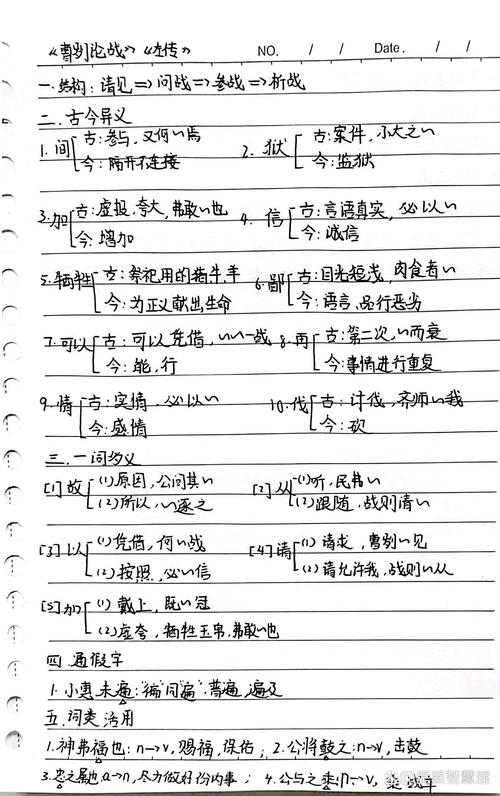 《曹刿论战》《左传》 NO. / / Date. / /
一.结构：请见=>问战=>参战=>析战
二.古今异义
1.间 古:参与，又何~焉 2.狱 古:案件，小大之~
今:隔开不连接 今:监狱
3.加 古:虚报，夸大，弗敢~也 4.信 古:言语真实，必以~
今:增加 今:诚信
5.牺牲 古:祭祀用的猪牛羊 6.鄙 古:目光短浅，肉食者~
今:为正义献出生命 今:语言，品行恶劣
7.可以 古:可以凭借，~~一战 8.再 古:第二次，~而衰
今:能，行 今:事情进行重复
9.情 古:实情，必以~ 10.伐 古:讨伐，齐师~我
今:感情 今:砍
三.一词多义
[1]故 (1)原因，公问其~ [2]从 (1)听，民弗~
(2)所以，~逐之 (2)跟随，战则请~
[3]以 (1)凭借，何~战 [4]请 (1)请求，曹刿~见
(2)按照，必~信 (2)请允许我，战则~从
[5]加 (1)戴上，既~冠
(2)虚夸，牺牲玉帛，弗敢~也
四.通假字
1.小惠未徧:"徧"同"遍"，普遍，遍及
五.词类活用
1.神弗福也:n->v，赐福，保佑；2.公将鼓之:n->v，击鼓
3.忠之属也 a->n，尽力做好份内事；4.公与之乘:n->v，乘战车